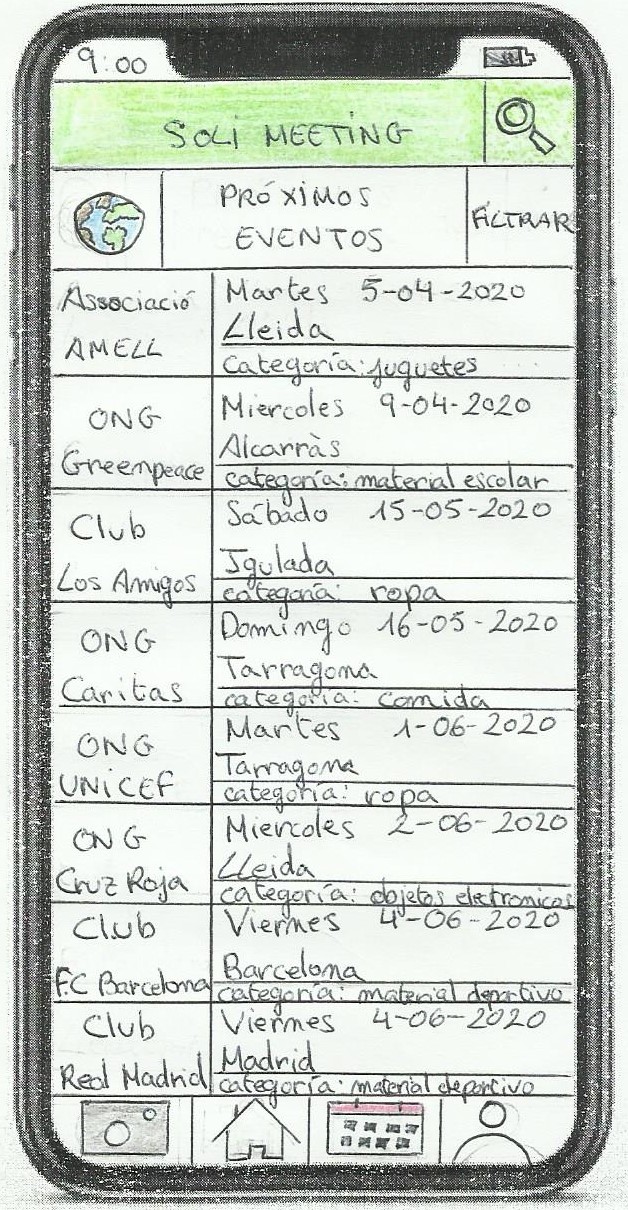 9:00
SOLI MEETING
PRÓXIMOS
EVENTOS
FILTRAR
Associació
AMELL
Martes 5-04-2020
Lleida
Categoría: juguetes
ONG
Greenpeace
Miercoles 9-04-2020
Alcarràs
categoría: material escolar
Club
Los Amigos
Sábado 15-05-2020
Igulada
categoría: ropa
ONG
Caritas
Domingo 16-05-2020
Tarragona
categoría: comida
ONG
UNICEF
Martes 1-06-2020
Tarragona
categoría: ropa
ONG
Cruz Roja
Miercoles 2-06-2020
Lleida
categoría: objetos electronicos
Club
F.C Barcelona
Viernes 4-06-2020
Barcelona
categoría: material deportivo
Club
Real Madrid
Viernes 4-06-2020
Madrid
categoría: material deportivo